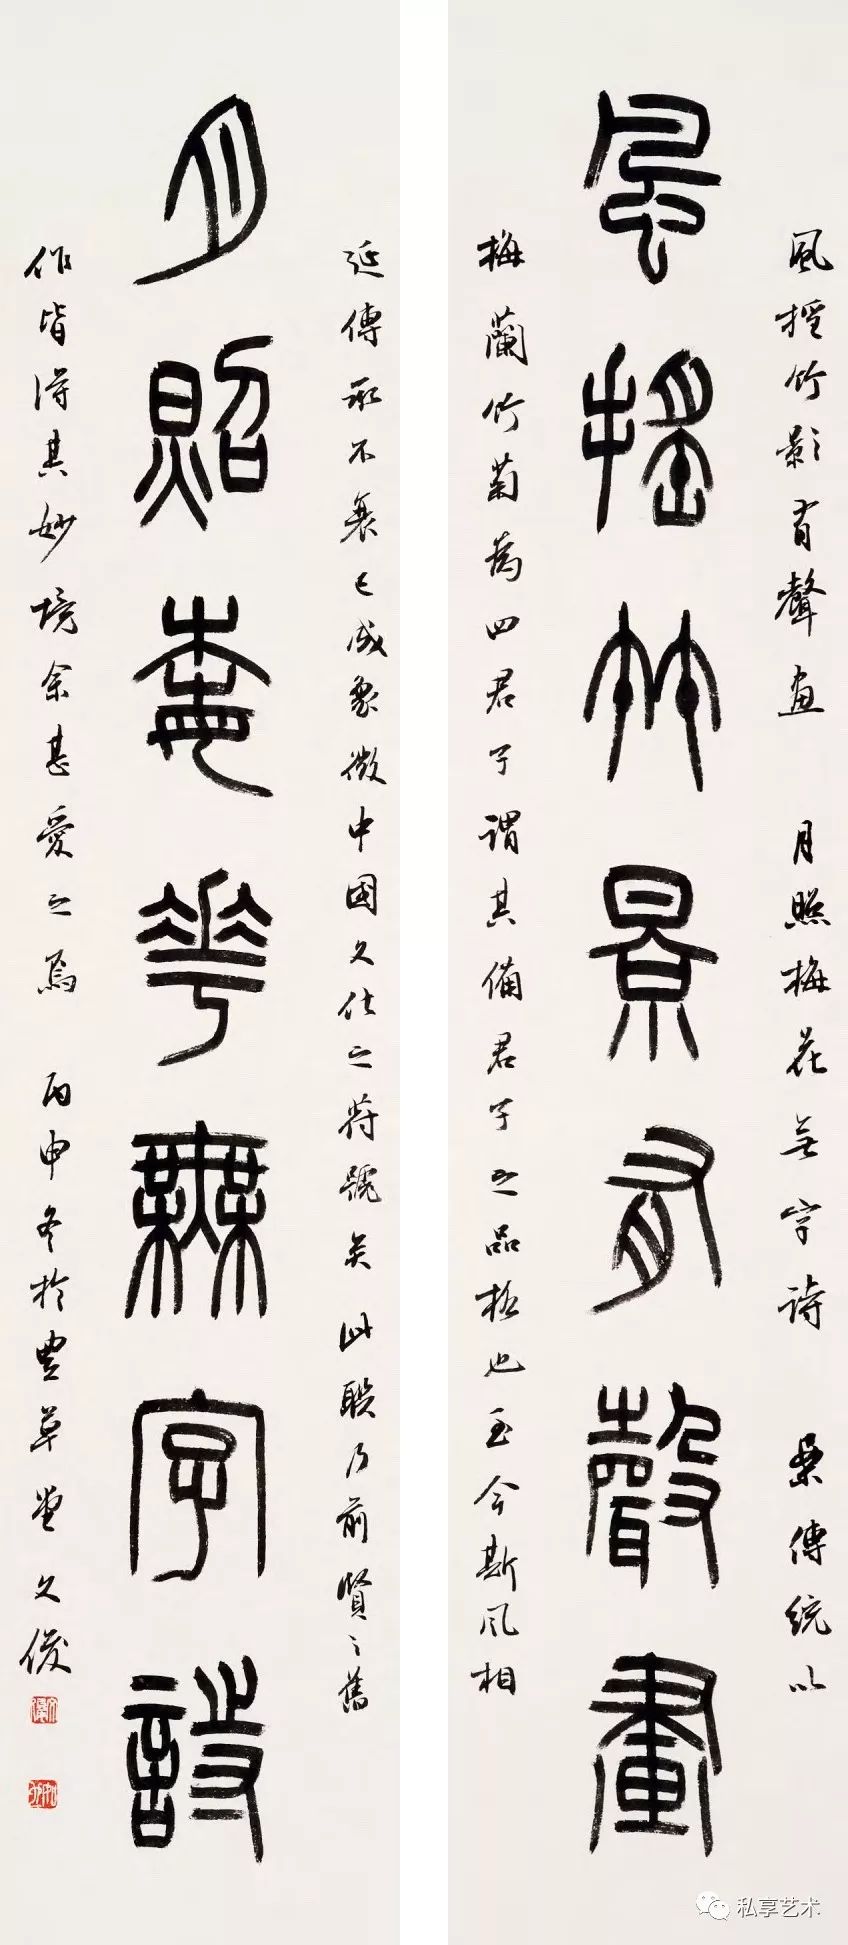 風搖竹影有聲画 月照梅花無字詩 傳統以
風搖竹景有聲畫
梅蘭竹菊為四君子謂其備君子之品格也至今斯風相
延傳承不衰已成象徵中国文化之符號矣 此聯乃前賢之舊
月照梅華無字詩
作皆得其妙境余甚愛之焉 丙申冬於豐草堂 文俊
私享艺术